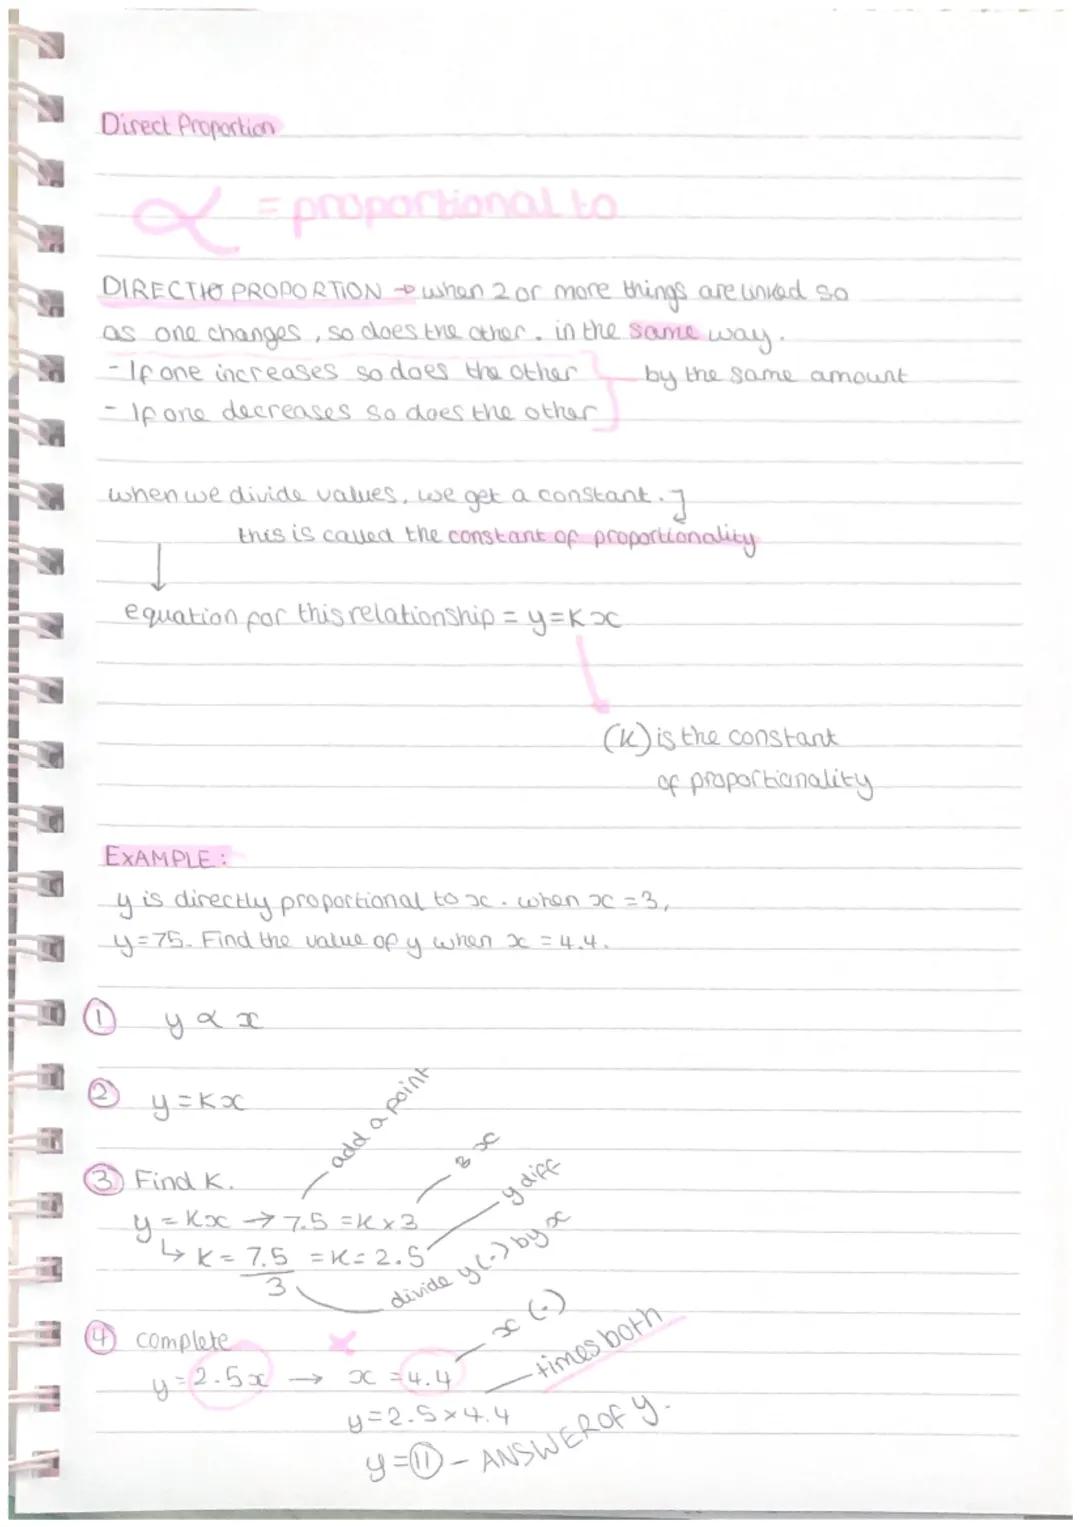 Direct Proportion
∝ = proportional to
DIRECTIO PROPORTION → when 2 or more things are linked so
as one changes, so does the other. in the same way.
- If one increases so does the other
by the same amount
- If one decreases so does the other
when we divide values, we get a constant.
this is called the constant of proportionality
equation for this relationship = y=Kx
(K) is the constant
of proportionality
EXAMPLE:
y is directly proportional to x. when x = 3,
y=75. Find the value of y when x = 4.4.
① y ∝ x
② y = Kx
add a point
3 x
③ Find K.
y diff
y = Kx → 7.5 = K x 3
↳ K = 7.5/3 = K = 2.5
divide y (.) by x
x (.)
④ complete
times both
y = 2.5x → x = 4.4
y = 2.5 x 4.4
y = 11 - ANSWER OF y.